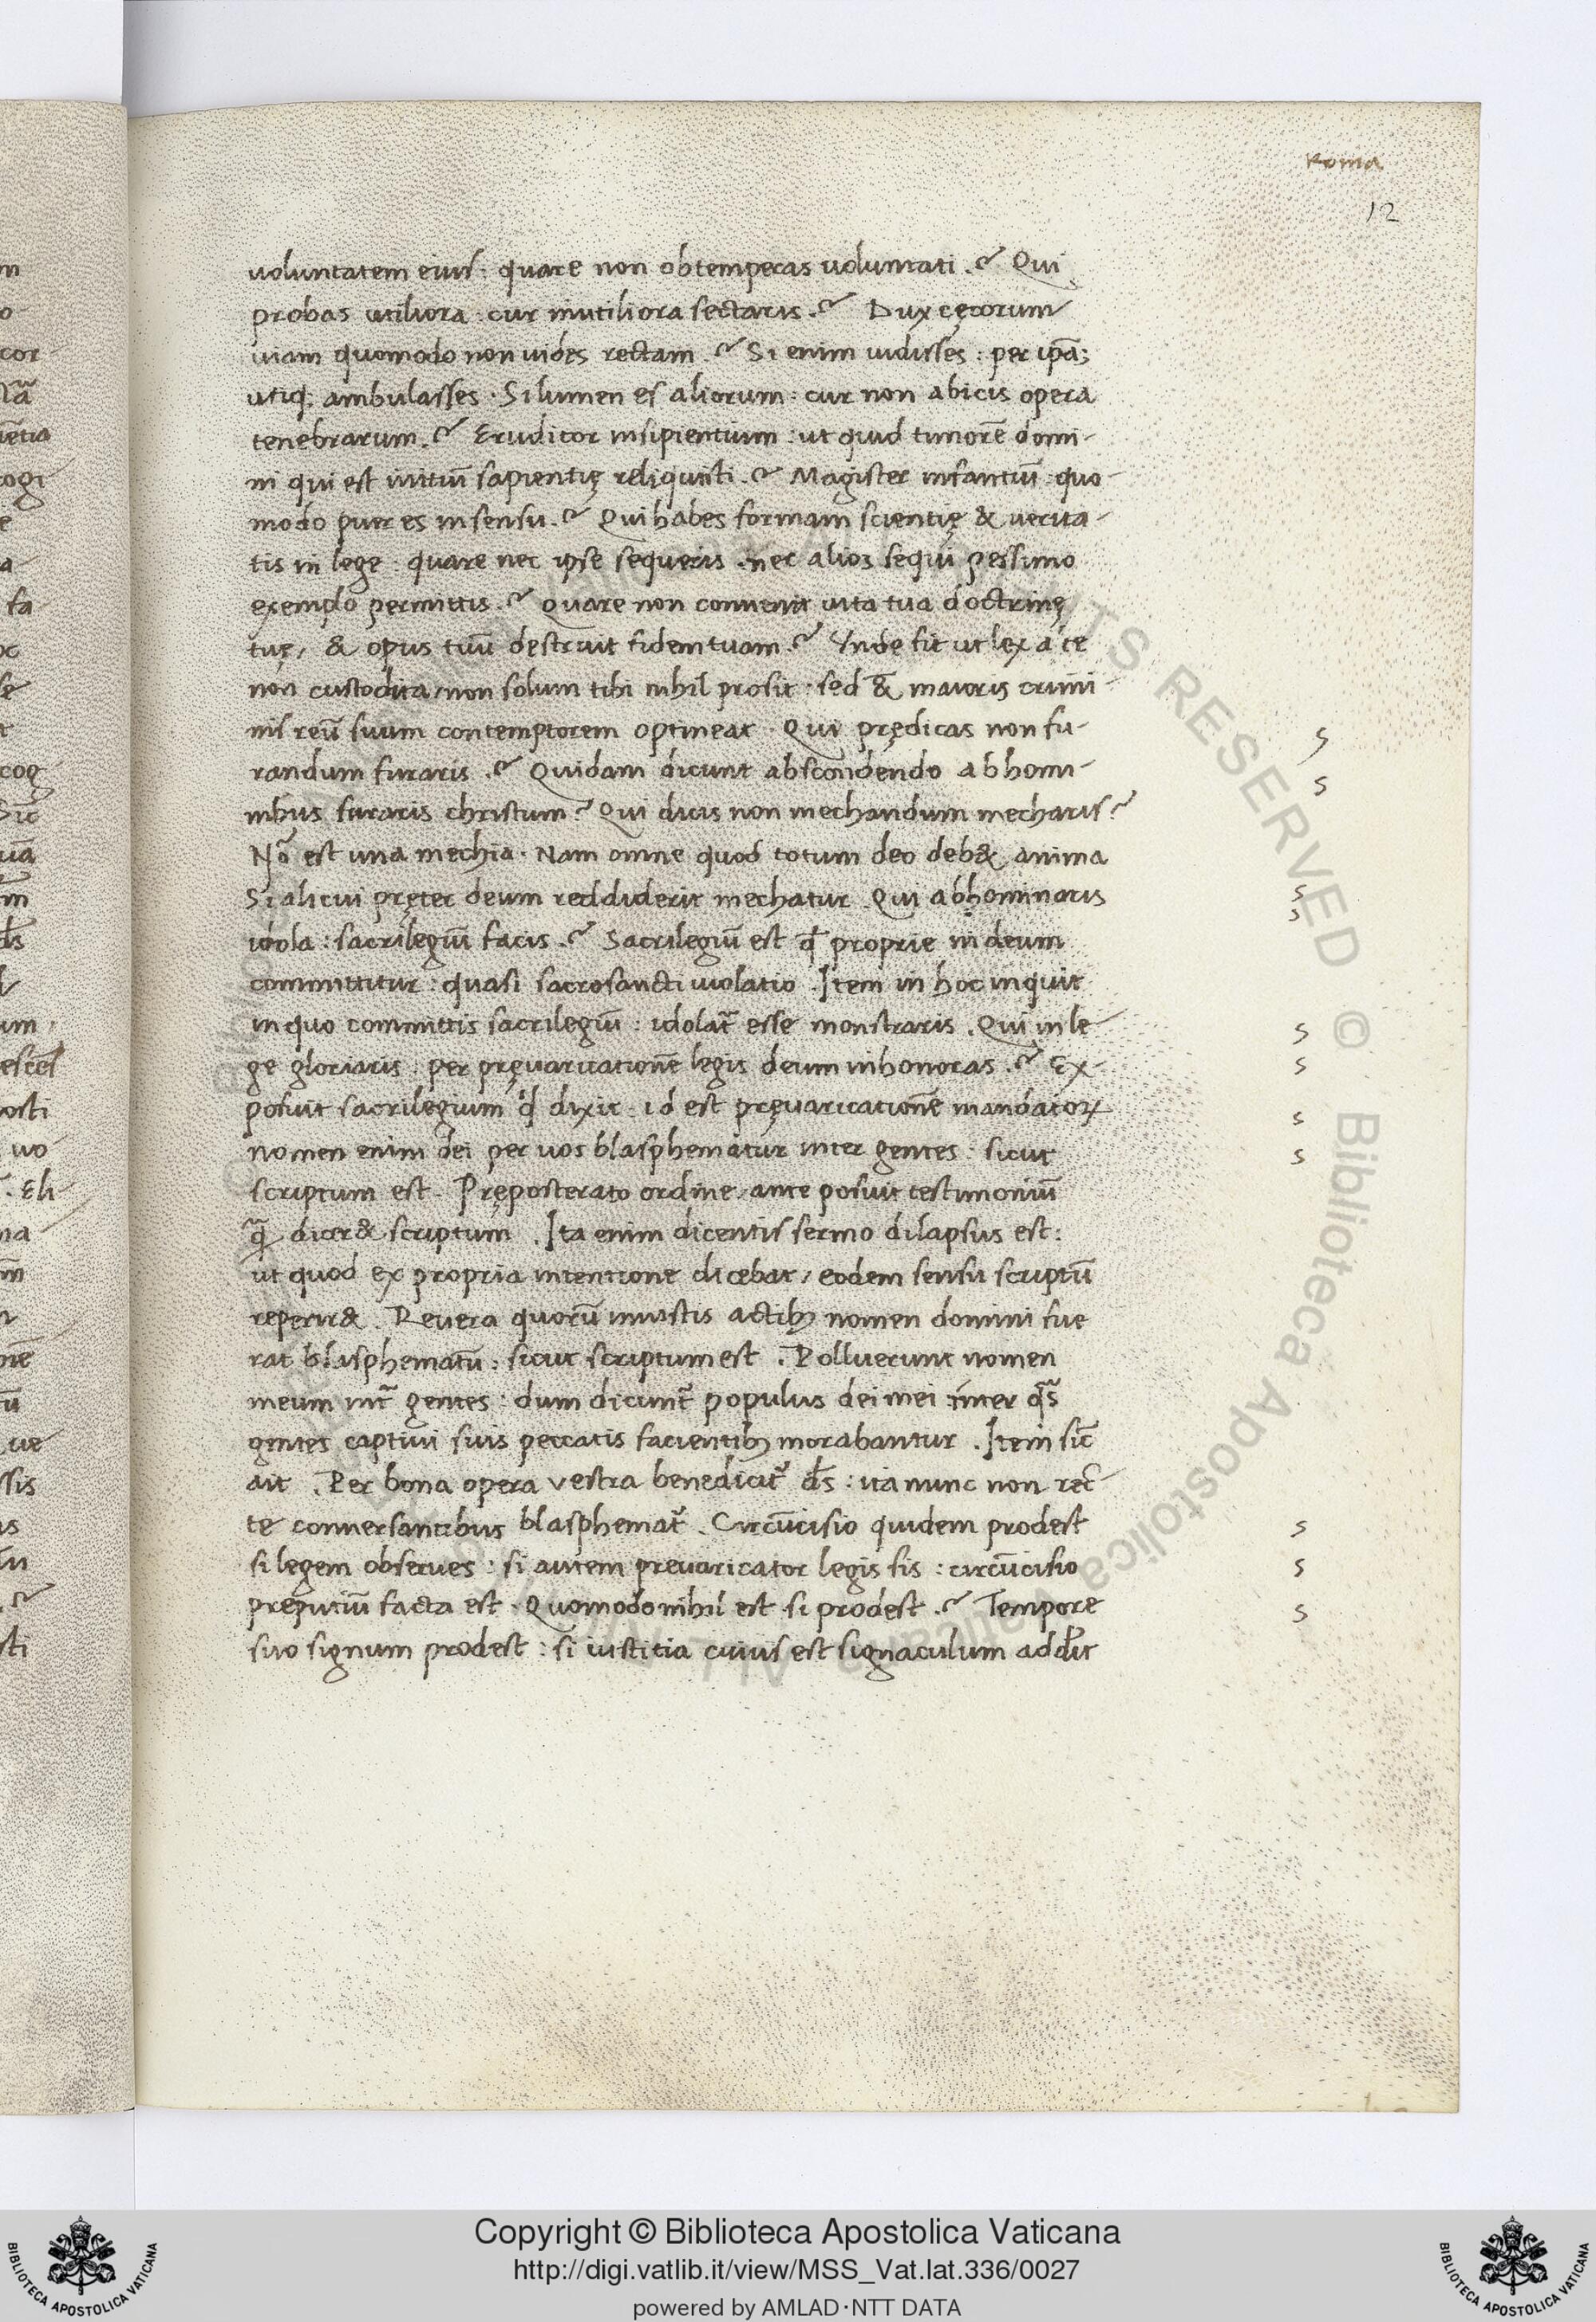 Roma
12
uoluntatem eius : quare non obtemperas uoluntati .? Qui
probas utiliora : cur inutiliora sectaris .? Dux cęcorum
uiam quomodo non uides rectam .? Si enim uidisses : per ip̄a;
utiq; ambulasses . Si lumen es aliorum : cur non abicis opera
tenebrarum .? Eruditor insipientium : ut quid timorē domi-
ni qui est initiū sapientię reliquisti .? Magister infantiū : quo-
modo puer es in sensu .? Qui habes formam scientię & uerita-
tis in lege : quare nec ipse sequeris . nec alios sequi pessimo
exemplo permittis .? Quare non conuenit uita tua doctrinę
tuę, & opus tuū destruit fidem tuam .? Ynde fit ut lex a te
non custodita / non solum tibi nihil prosit : sed & maioris crimi-
nis reū suum contemptorem optineat . Qui prędicas non fu-
randum furaris .? Quidam dicunt abscondendo ab homi-
nibus furaris christum ? Qui dicis non mechandum mecharis ?
Nō est una mechia . Nam omne quod totum deo deb& anima
Si alicui pręter deum reddiderit mechatur . Qui abhominaris
idola : sacrilegiū facis .? Sacrilegiū est qđ proprie in deum
committitur : quasi sacrosancti uiolatio . Item in hoc inquit
in quo committis sacrilegiū : idolat̄ esse monstraris . Qui in le
ge gloriaris : per pręuaricationē legis deum inhonoras .? Ex-
posuit sacrilegium qđ dixit : id est pręuaricationē mandatoꝝ
nomen enim dei per uos blasphematur inter gentes : sicut
scriptum est . Pręposterato ordine / ante posuit testimoniū
q̄ dicer& scriptum . Ita enim dicentis sermo dilapsus est :
ut quod ex propria intentione dicebat / eodem sensu scriptū
reperir& . Reuera quorū iniustis actibꝫ nomen domini fue
rat blasphematū : sicut scriptum est . Polluerunt nomen
meum int̄ gentes : dum dicunt̄ populus dei mei : inter q̄s
gentes captiui suis peccatis facientibꝫ morabantur . Item sic̄
ait . Per bona opera vestra benedicit̄ d̄s : ita nunc non rec-
te conuersantibus blasphemat̄ . Circūcisio quidem prodest
si legem obserues : si autem preuaricator legis sis : circūcisio
preputiū facta est . Quomodo nihil est si prodest .? Tempore
suo signum prodest : si iustitia cuius est signaculum adđit
s
s
s
s
s
s
s
s
s
s
s
ALL RIGHTS RESERVED © Biblioteca Apostolica Vaticana
Copyright © Biblioteca Apostolica Vaticana
http://digi.vatlib.it/view/MSS_Vat.lat.336/0027
powered by AMLAD·NTT DATA
BIBLIOTECA APOSTOLICA VATICANA
BIBLIOTECA APOSTOLICA VATICANA